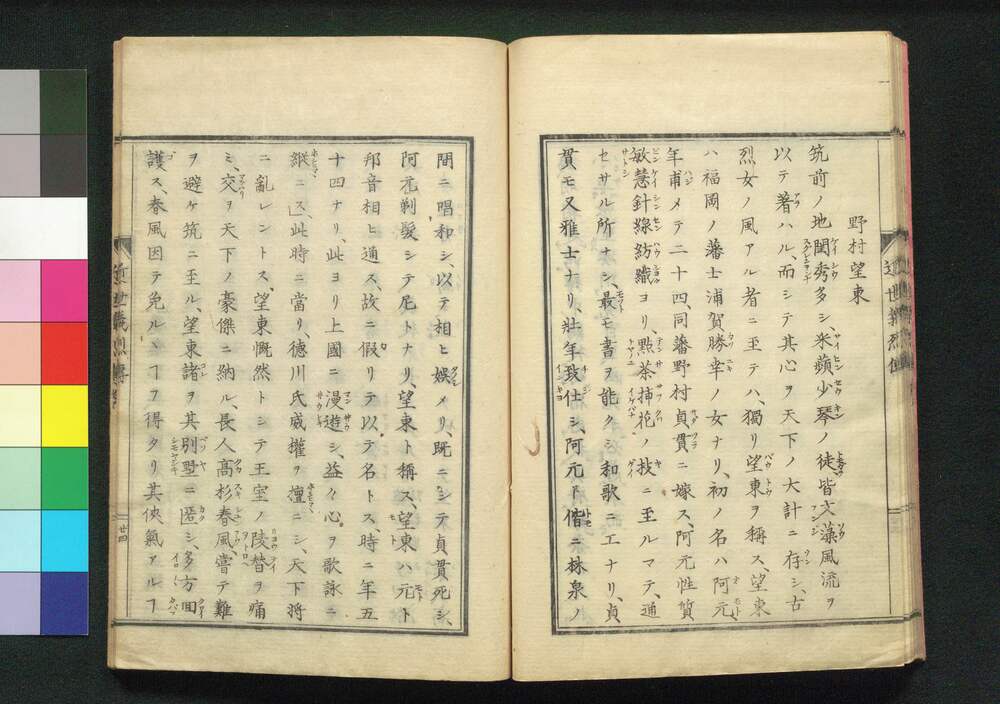 野村望東
筑前ノ地閨秀多シ、采蘋少琴ノ徒皆文藻風流ヲ
以テ著ハル、而シテ其心ヲ天下ノ大計ニ存シ、古
烈女ノ風アル者ニ至テハ、獨リ望東ヲ稱ス、望東
ハ福岡ノ藩士浦賀勝幸ノ女ナリ、初ノ名ハ阿元、
年甫メテ二十四、同藩野村貞貫ニ嫁ス、阿元性質
敏慧針線紡織ヨリ、點茶挿花ノ技ニ至ルマテ、通
セサル所ナシ、最モ書ヲ能クシ和歌ニ工ナリ、貞
貫モ又雅士ナリ、壯年致仕シ、阿元ト偕ニ林泉ノ
間ニ唱和シ、以テ相ヒ娯メリ、既ニシテ貞貫死シ、
阿元剃髮シテ尼トナリ、望東ト稱ス、望東ハ元ト
邦音相ヒ通ス、故ニ假リテ以テ名トス時ニ年五
十四ナリ、此ヨリ上國ニ漫遊シ、益々心ヲ歌詠ニ
縱ニス、此時ニ當リ、德川氏威權ヲ擅ニシ、天下將
ニ亂レントス、望東慨然トシテ王室ノ陵替ヲ痛
ミ、交ヲ天下ノ豪傑ニ納ル、長人高杉春風嘗テ難
ヲ避ケ筑ニ至ル、望東諸ヲ其別墅ニ匿シ、多方回
護ス、春風因テ免ルヽヿヲ得タリ其俠氣アルヿ
近世義烈傳
廿四